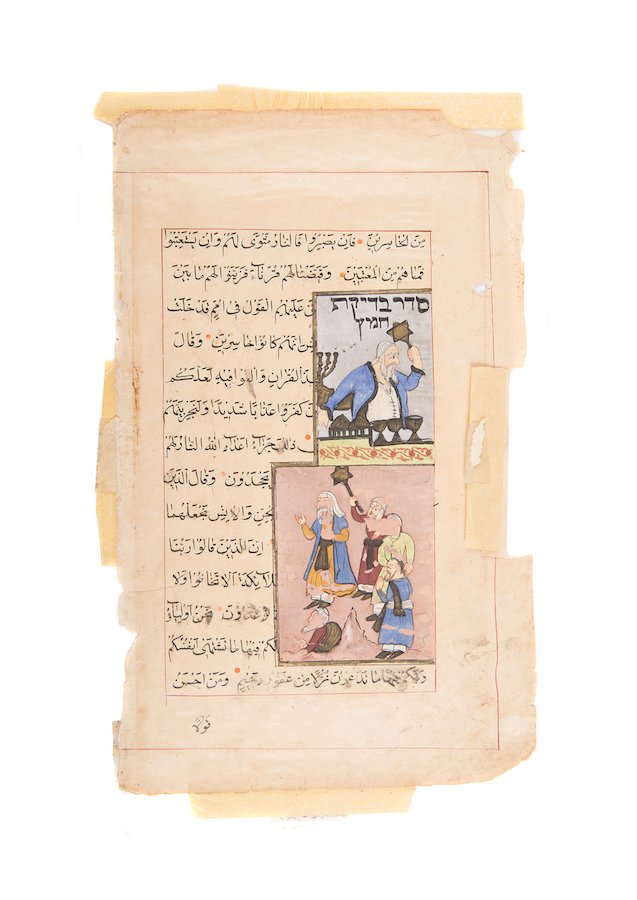 مِنَ الْخَاسِرِينَ فَاِن يَصْبِرُوا فَالنَّارُ مَثْوًى لَهُمْ وَاِن يَسْتَعْتِبُوا
فَمَا هُمْ مِنَ الْمُعْتَبِينَ وَقَيَّضْنَا لَهُمْ قُرَنَاءَ فَزَيَّنُوا لَهُمْ مَا بَيْنَ
عَلَيْهِمُ الْقَوْلُ فِي اُمَمٍ قَدْ خَلَتْ
סדר בדיקת
חמץ
اِنَّهُمْ كَانُوا خَاسِرِينَ وَقَالَ
الْقُرْاٰنِ وَالْغَوْا فِيهِ لَعَلَّكُمْ
كَفَرُوا عَذَابًا شَدِيدًا وَلَنَجْزِيَنَّهُمْ
ذٰلِكَ جَزَاءُ اَعْدَاءِ اللّٰهِ النَّارُ لَهُمْ
يَجْحَدُونَ وَقَالَ الَّذِينَ
الْجِنِّ وَالْاِنْسِ نَجْعَلْهُمَا
اِنَّ الَّذِينَ قَالُوا رَبُّنَا
اَلَّا تَخَافُوا وَلَا
نَحْنُ اَوْلِيَاؤُ
لَكُمْ فِيهَا مَا تَشْتَهِي اَنْفُسُكُمْ
وَلَكُمْ فِيهَا مَا تَدَّعُونَ نُزُلًا مِنْ غَفُورٍ رَحِيمٍ وَمَنْ اَحْسَنُ
قَوْلًا